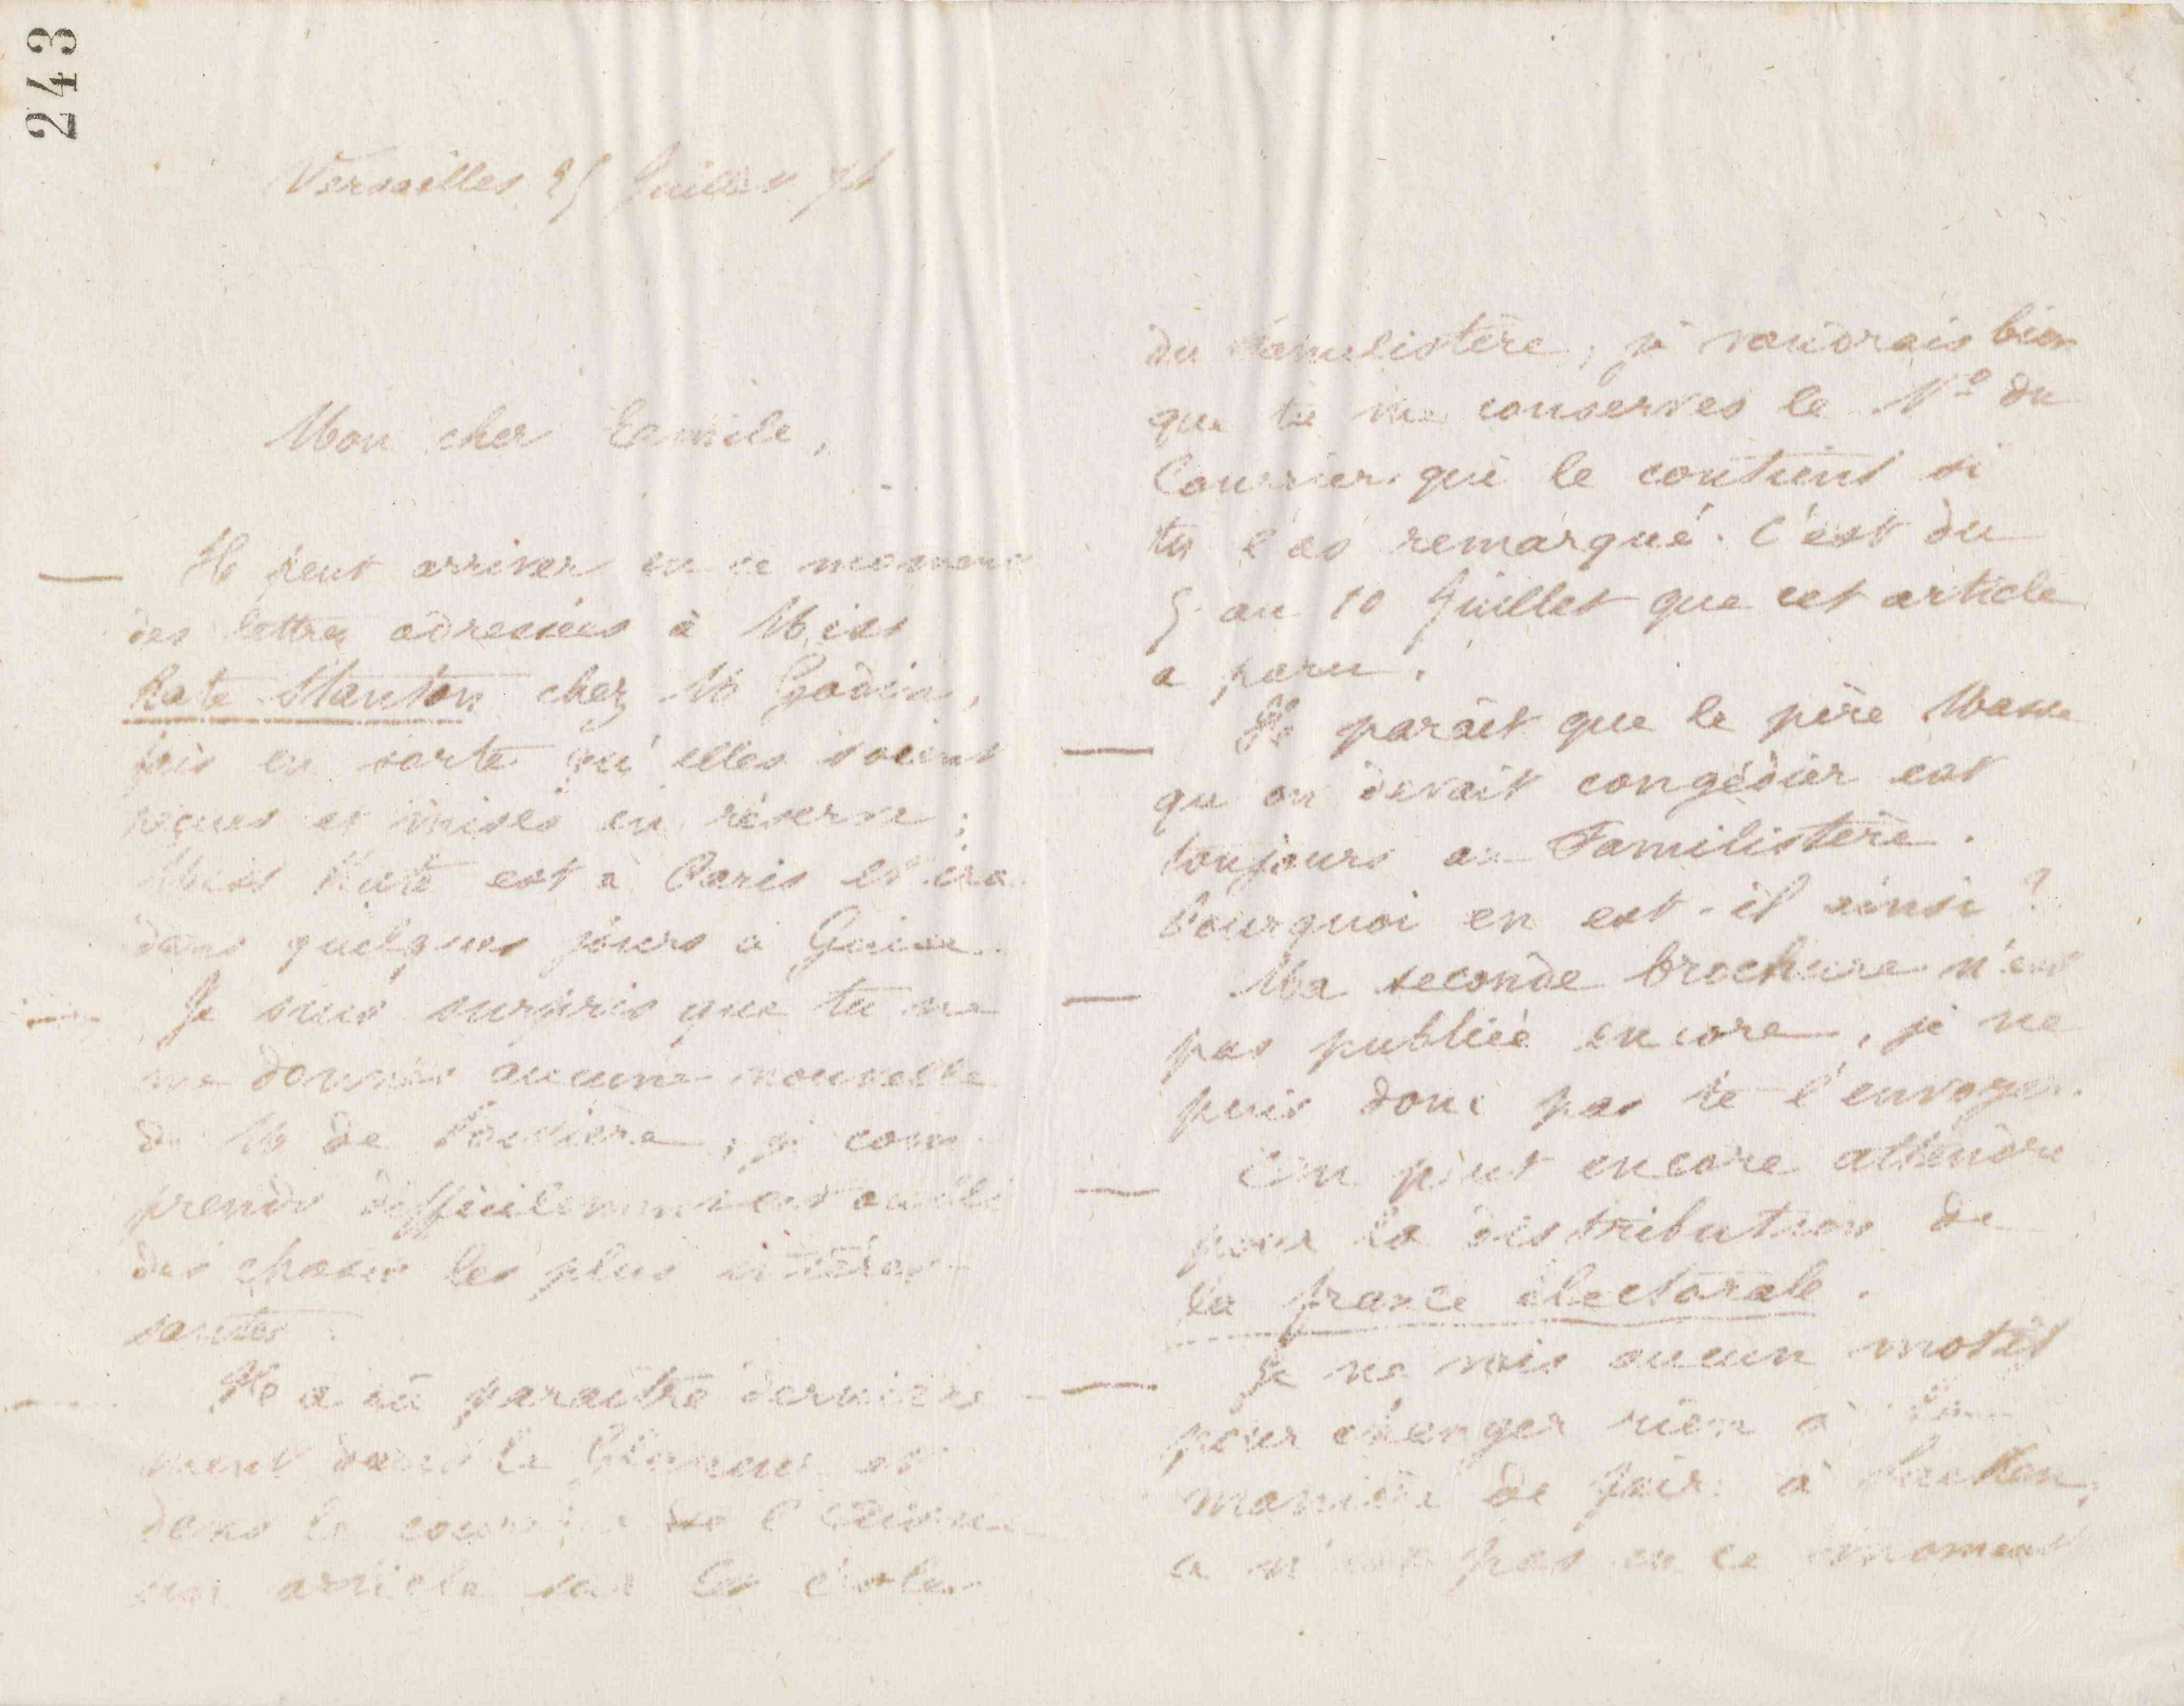 243
Versailles 25 Juillet 74
Mon cher Emile,
Il peut arriver en ce moment
des lettres adressées à Miss
Kate Stanton chez M Godin,
fais en sorte qu'elles soient
reçues et mises en réserve ;
Miss Kate est a Paris et ira
dans quelques jours a Guise.
Je suis surpris que tu ne
me donnes aucune nouvelle
de M de ; je com
prends difficilement cet oubli
des choses les plus intéres-
santes.
Il a dû paraitre dernière
ment dans le Glaneur et
dans le courrier de l'Aisne
un article sur les écoles
du Familistère, je voudrais bien
que tu me conserves le No du
Courrier qui le contient si
tu l'as remarqué. C'est du
5 au 10 Juillet que cet article
a paru.
Il parait que le père
qu on devait congédier est
toujours au Familistère.
Pourquoi en est-il ainsi ?
Ma seconde brochure n'est
pas publiée encore, je ne
puis donc pas te l'envoyer.
On peut encore attendre
pour la distribution de
la france électorale.
Je ne vois aucun motif
pour changer rien à la
manière de faire à Laeken,
ce n'est pas en ce moment